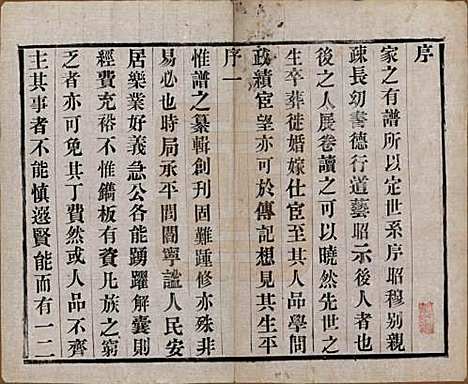 序
家之有譜所以定世系序昭穆别親
疎長幼書德行道藝昭示後人者也
後之人展卷讀之可以曉然先世之
生卒葬徙婚嫁仕宦至其人品學問
政績宦望亦可於傳記想見其生平
序一
惟譜之纂輯創刊固難踵修亦殊非
易必也時局承平閭閻寧謐人民安
居樂業好義急公各能踴躍解囊則
經費充裕不惟鐫板有資凡族之窮
乏者亦可免其丁費然或人品不齊
主其事者不能慎選賢能而有一二